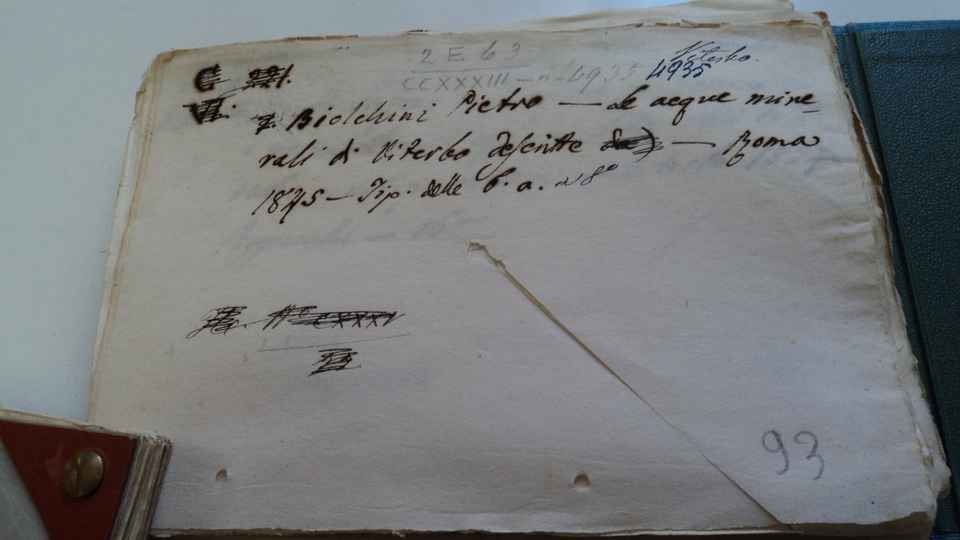 2 E 63
CCXXXIII — n. 4935
Viterbo.
4935
G 221.
VI.
Biolchini Pietro — Le acque mine=
rali di Viterbo descritte — Roma
1875 — Tip. delle b. a. 8°
CXXXV
93